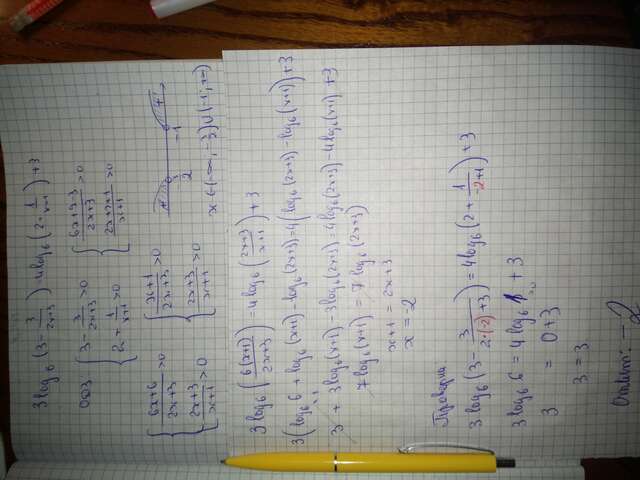 3log₆(3-3/(2x+3))=4log₆(2+1/(x+1))+3
ОДЗ
{3-3/(2x+3)>0
2+1/(x+1)>0
{(6x+9-3)/(2x+3)>0
(2x+2+1)/(x+1)>0
{(6x+6)/(2x+3)>0
(2x+3)/(x+1)>0
{(x+1)/(2x+3)>0
(2x+3)/(x+1)>0
-3/2 -1
x∈(-∞;-3/2)∪(-1;∞)
3log₆(6(x+1)/(2x+3))=4log₆((2x+3)/(x+1))+3
3(log₆6+log₆(x+1)-log₆(2x+3))=4(log₆(2x+3)-log₆(x+1))+3
3+3log₆(x+1)-3log₆(2x+3)=4log₆(2x+3)-4log₆(x+1)+3
7log₆(x+1)=7log₆(2x+3)
x+1=2x+3
x=-2
Проверка
3log₆(3-3/(2·(-2)+3))=4log₆(2+1/(-2+1))+3
3log₆6=4log₆1+3
3=0+3
3=3
Ответ: -2